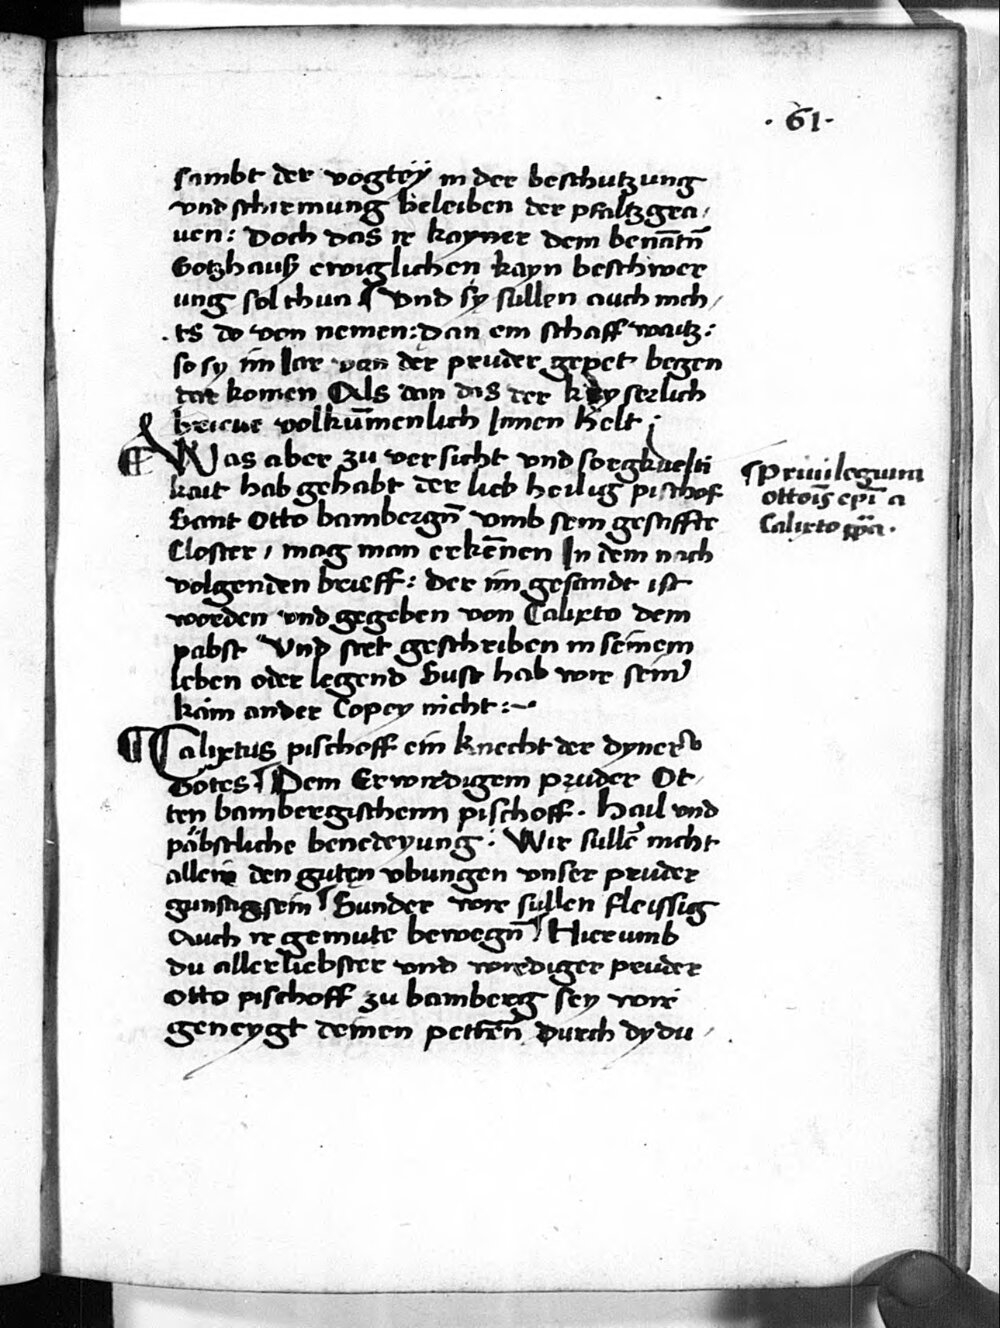 . 61 .
sambt der vogteÿ in der beschutzung
vnd schirmung beleiben der pfaltzgra,
uen: Doch das ir kayner dem benāntñ
Gotzhauß ewiglichen kayn beschwer
ung sol thun Vnd sÿ sullen auch nich,
ts do von nemen: Dan ein schaff waitz:
so sy im Iar von der pruder gepet begen
komen Als dan das der kayserlich
brieue volkūmenlich Innen helt
Was aber zu versicht vnd sorgkueſti
kait hab gehabt der lieb heilig pischof
Sant Otto bambergñ vmb sein gestiffte
Closter, mag man erkēnen In dem nach
volgenden brieff: der im gesandt ist
worden vnd gegeben von Calixto dem
pabst Vnd stet geschriben in seinem
leben oder legend Sust hab wir sein
kain ander Copey nicht:~
Priuilegium
ottoīs ep̄i a
Calixto pp̄a.
Calixtus pischoff ein knecht der dyner
Gotes Dem Erwirdigem pruder Ot,
ten bambergischenn pischoff. Hail vnd
päbstliche benedeyung: Wir sullē nicht
allein den guten vbungen vnser pruder
gunstig sein Sunder wir sullen fleissig
Auch ir gemute bewegñ Hierumb
du allerliebster vnd wirdiger pruder
Otto pischoff zu bamberg sey wir
geneygt deinen petten̄ Durch dy du,